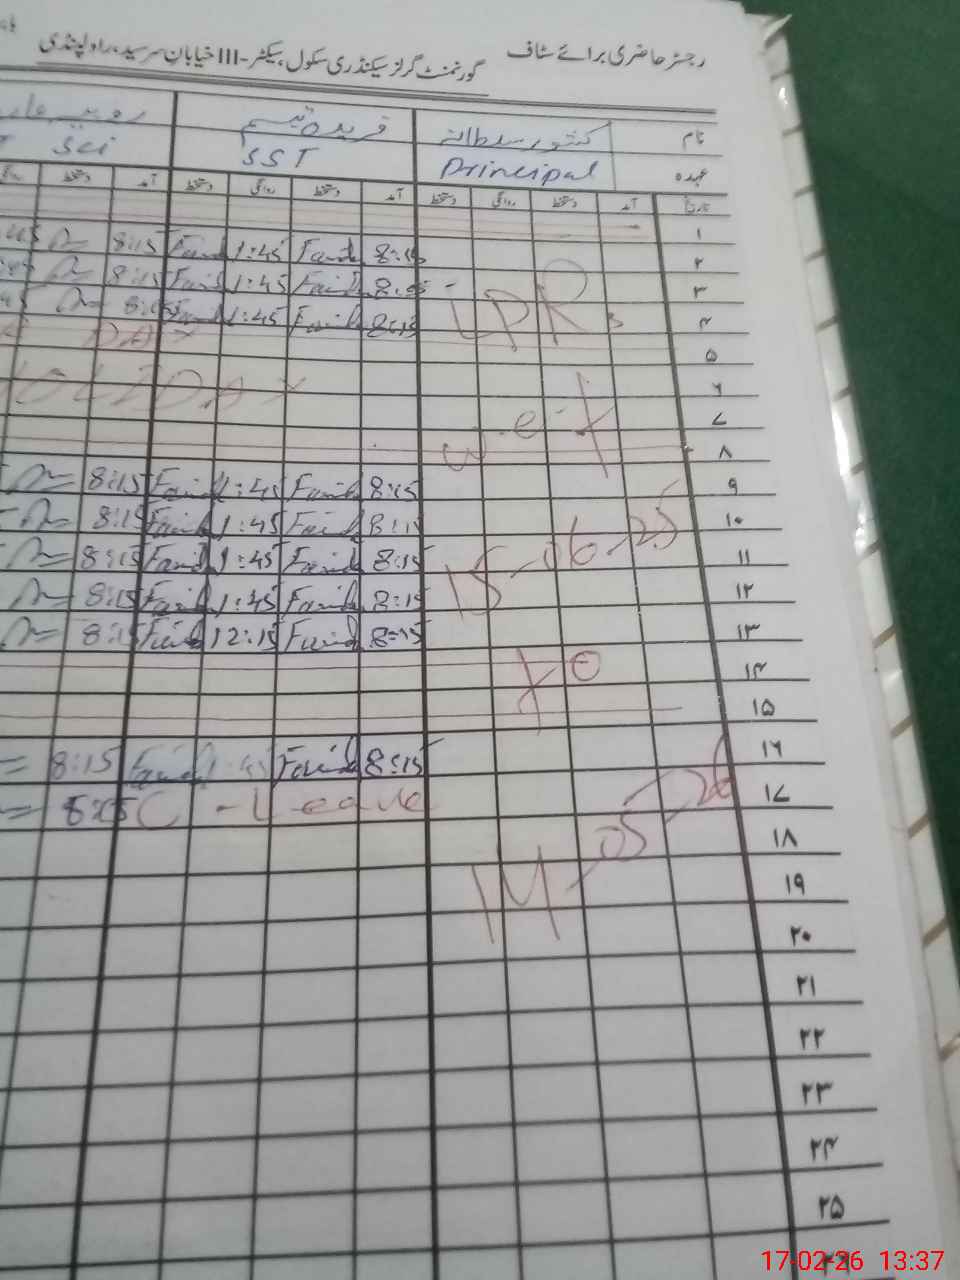 رجسٹر حاضری برائے سٹاف گورنمنٹ گرلز سیکنڈری سکول سیکٹر-III خیابان سر سید، راولپنڈی
نام کشور سلطانہ
عہدہ Principal SST Sci
تاریخ آمد دستخط روانگی دستخط آمد دستخط روانگی دستخط آمد دستخط
۱
۲ 8:15 Farid 1:45 Farid 8:15
۳ 8:15 Farid 1:45 Farid 8:15
۴ LPR 8:15 Farid 1:45 8:15
۵ DAY
۶
۷ w.e.f HOLIDAY
۸
۹ 8:15 Farid 1:45 Farid 8:15
۱۰ 8:15 Farid 1:45 Farid 8:15
۱۱ 15-06-25 8:15 Farid 1:45 Farid 8:15
۱۲ 8:15 Farid 1:45 Farid 8:15
۱۳ 8:15 Farid 12:15 Farid 8:15
۱۴ to
۱۵
۱۶ 8:15 Farid 1:45 Farid 8:15
۱۷ C-Leave
۱۸ 14-05-26
۱۹
۲۰
۲۱
۲۲
۲۳
۲۴
۲۵
17-02-26 13:37